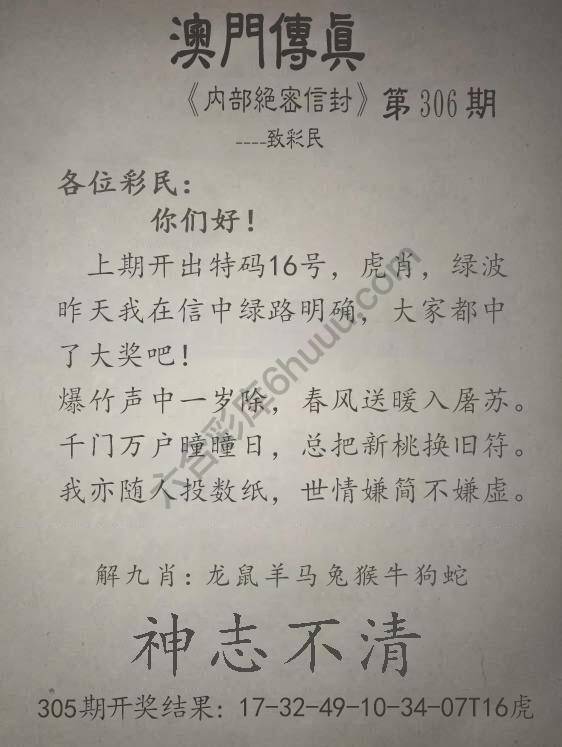 澳門傳眞
《内部絕密信封》第306期
----致彩民
各位彩民：
你们好！
上期开出特码16号，虎肖，绿波
昨天我在信中绿路明确，大家都中
了大奖吧！
爆竹声中一岁除，春风送暖入屠苏。
千门万户曈曈日，总把新桃换旧符。
我亦随人投数纸，世情嫌简不嫌虚。
六合彩库6huuu.com
解九肖：龙鼠羊马兔猴牛狗蛇
神志不清
305期开奖结果：17-32-49-10-34-07T16虎